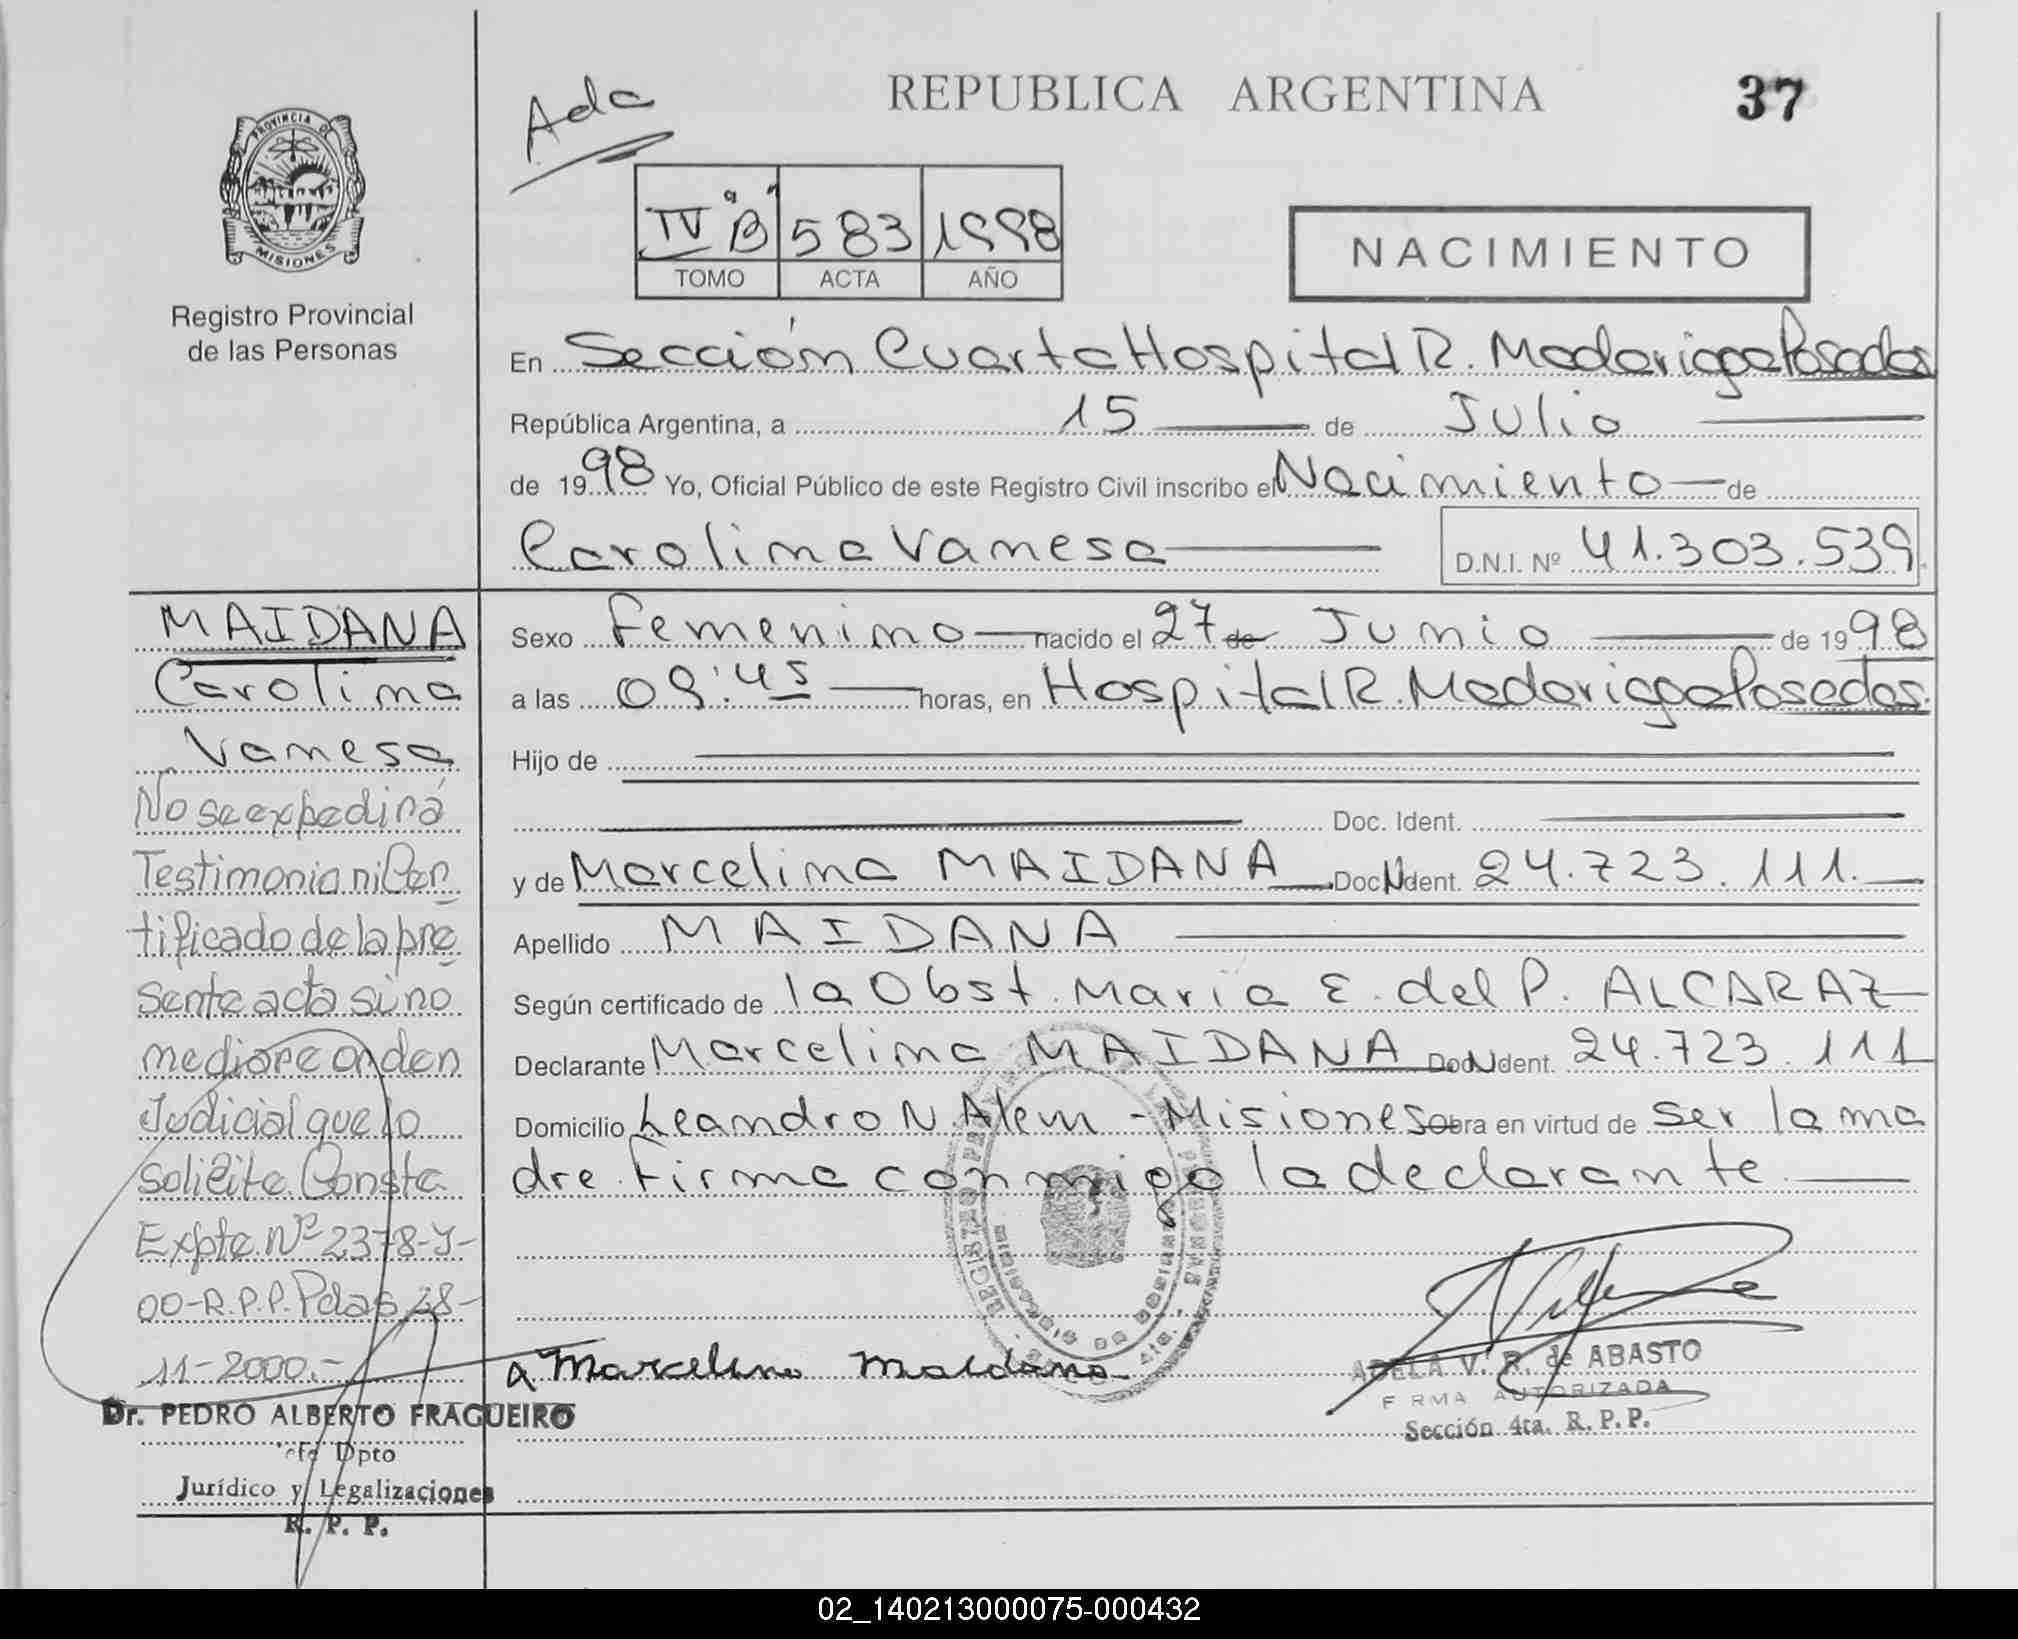 Ada
REPUBLICA ARGENTINA
37
PROVINCIA DE
MISIONES
Registro Provincial
de las Personas
IV "B" 583 1998
TOMO ACTA AÑO
NACIMIENTO
En Sección Cuarta Hospital R. Madariaga Posadas
República Argentina, a 15 de Julio
de 1998 Yo, Oficial Público de este Registro Civil inscribo el Nacimiento de
Carolina Vanesa
D.N.I. Nº 41.303.539
MAIDANA
Carolina
Vanesa
No se expedirá
Testimonio ni Cer
tificado de la pre
sente acta si no
mediare orden
Judicial que lo
solicite. Conste.
Expte. Nº 2378-Y-
00-R.P.P. Pdas 28-
11-2000.-
Dr. PEDRO ALBERTO FRAGUEIRO
Jefe Dpto
Jurídico y Legalizaciones
R. P. P.
Sexo Femenino nacido el 27 de Junio de 1998
a las 09:45 horas, en Hospital R. Madariaga Posadas.
Hijo de
Doc. Ident.
y de Marcelina MAIDANA Doc. Ident. 24.723.111.
Apellido MAIDANA
Según certificado de la Obst. Maria E. del P. ALCARAZ
Declarante Marcelina MAIDANA Doc. Ident. 24.723.111
Domicilio Leandro N. Alem - Misiones obra en virtud de ser la ma
dre. Firma conmigo la declarante
Marcelina Maidana
ADELA V. R. de ABASTO
FIRMA AUTORIZADA
Sección 4ta. R. P. P.
02_140213000075-000432